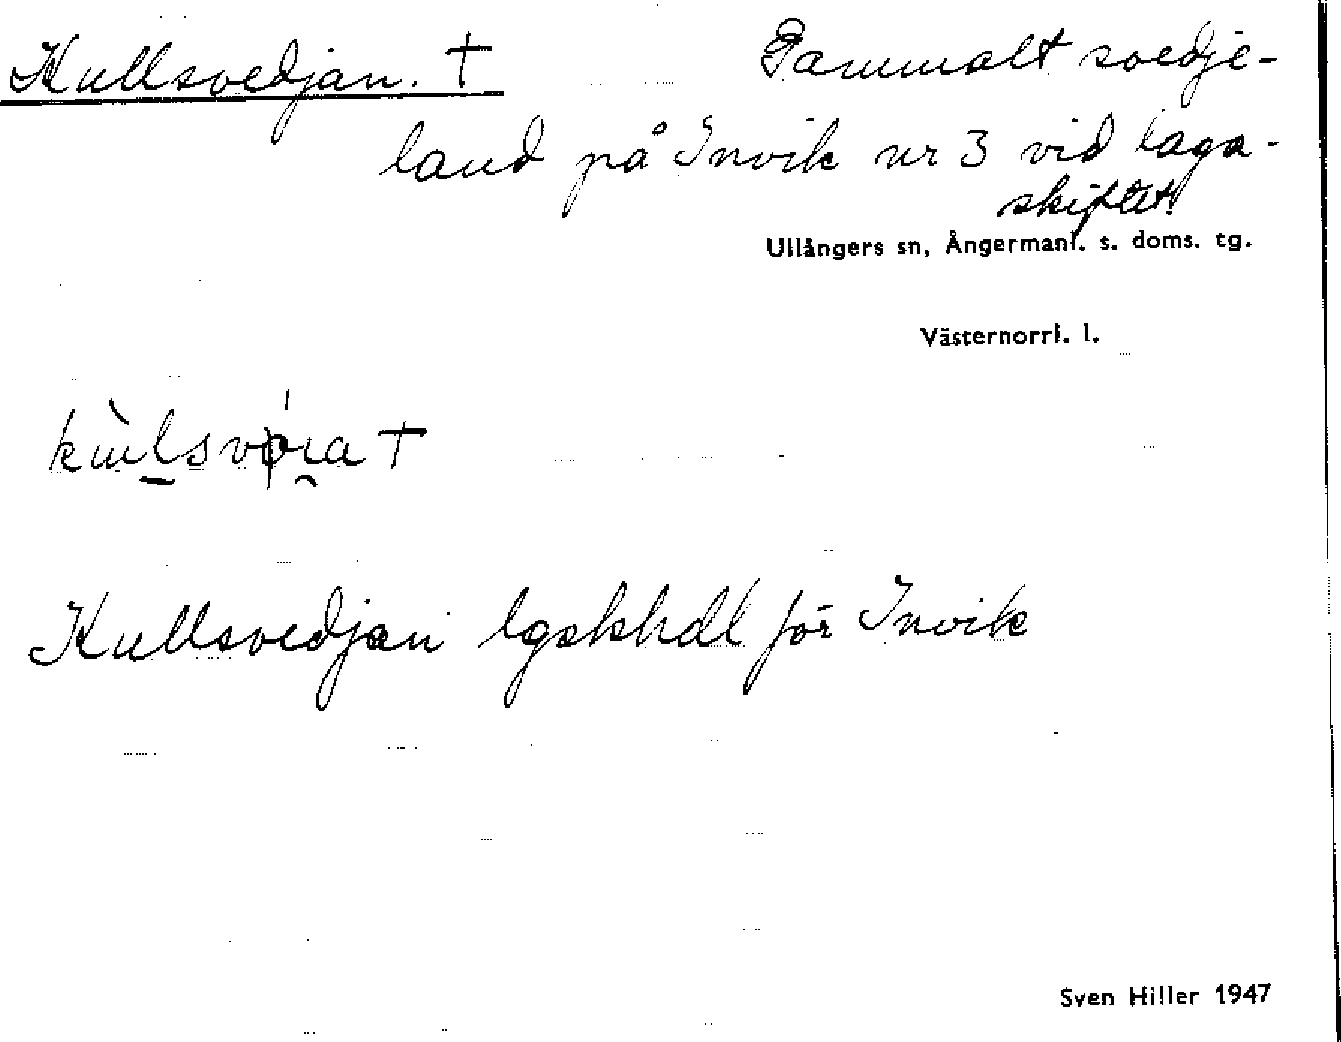 Kullsvedjan. † Gammalt svedje-
land på Invik nr 3 vid laga-
skiftet.
Ullångers sn, Ångermanl. s. doms. tg.
Västernorrl. l.
Kullsvedjan lgskhdl för Invik
Sven Hiller 1947